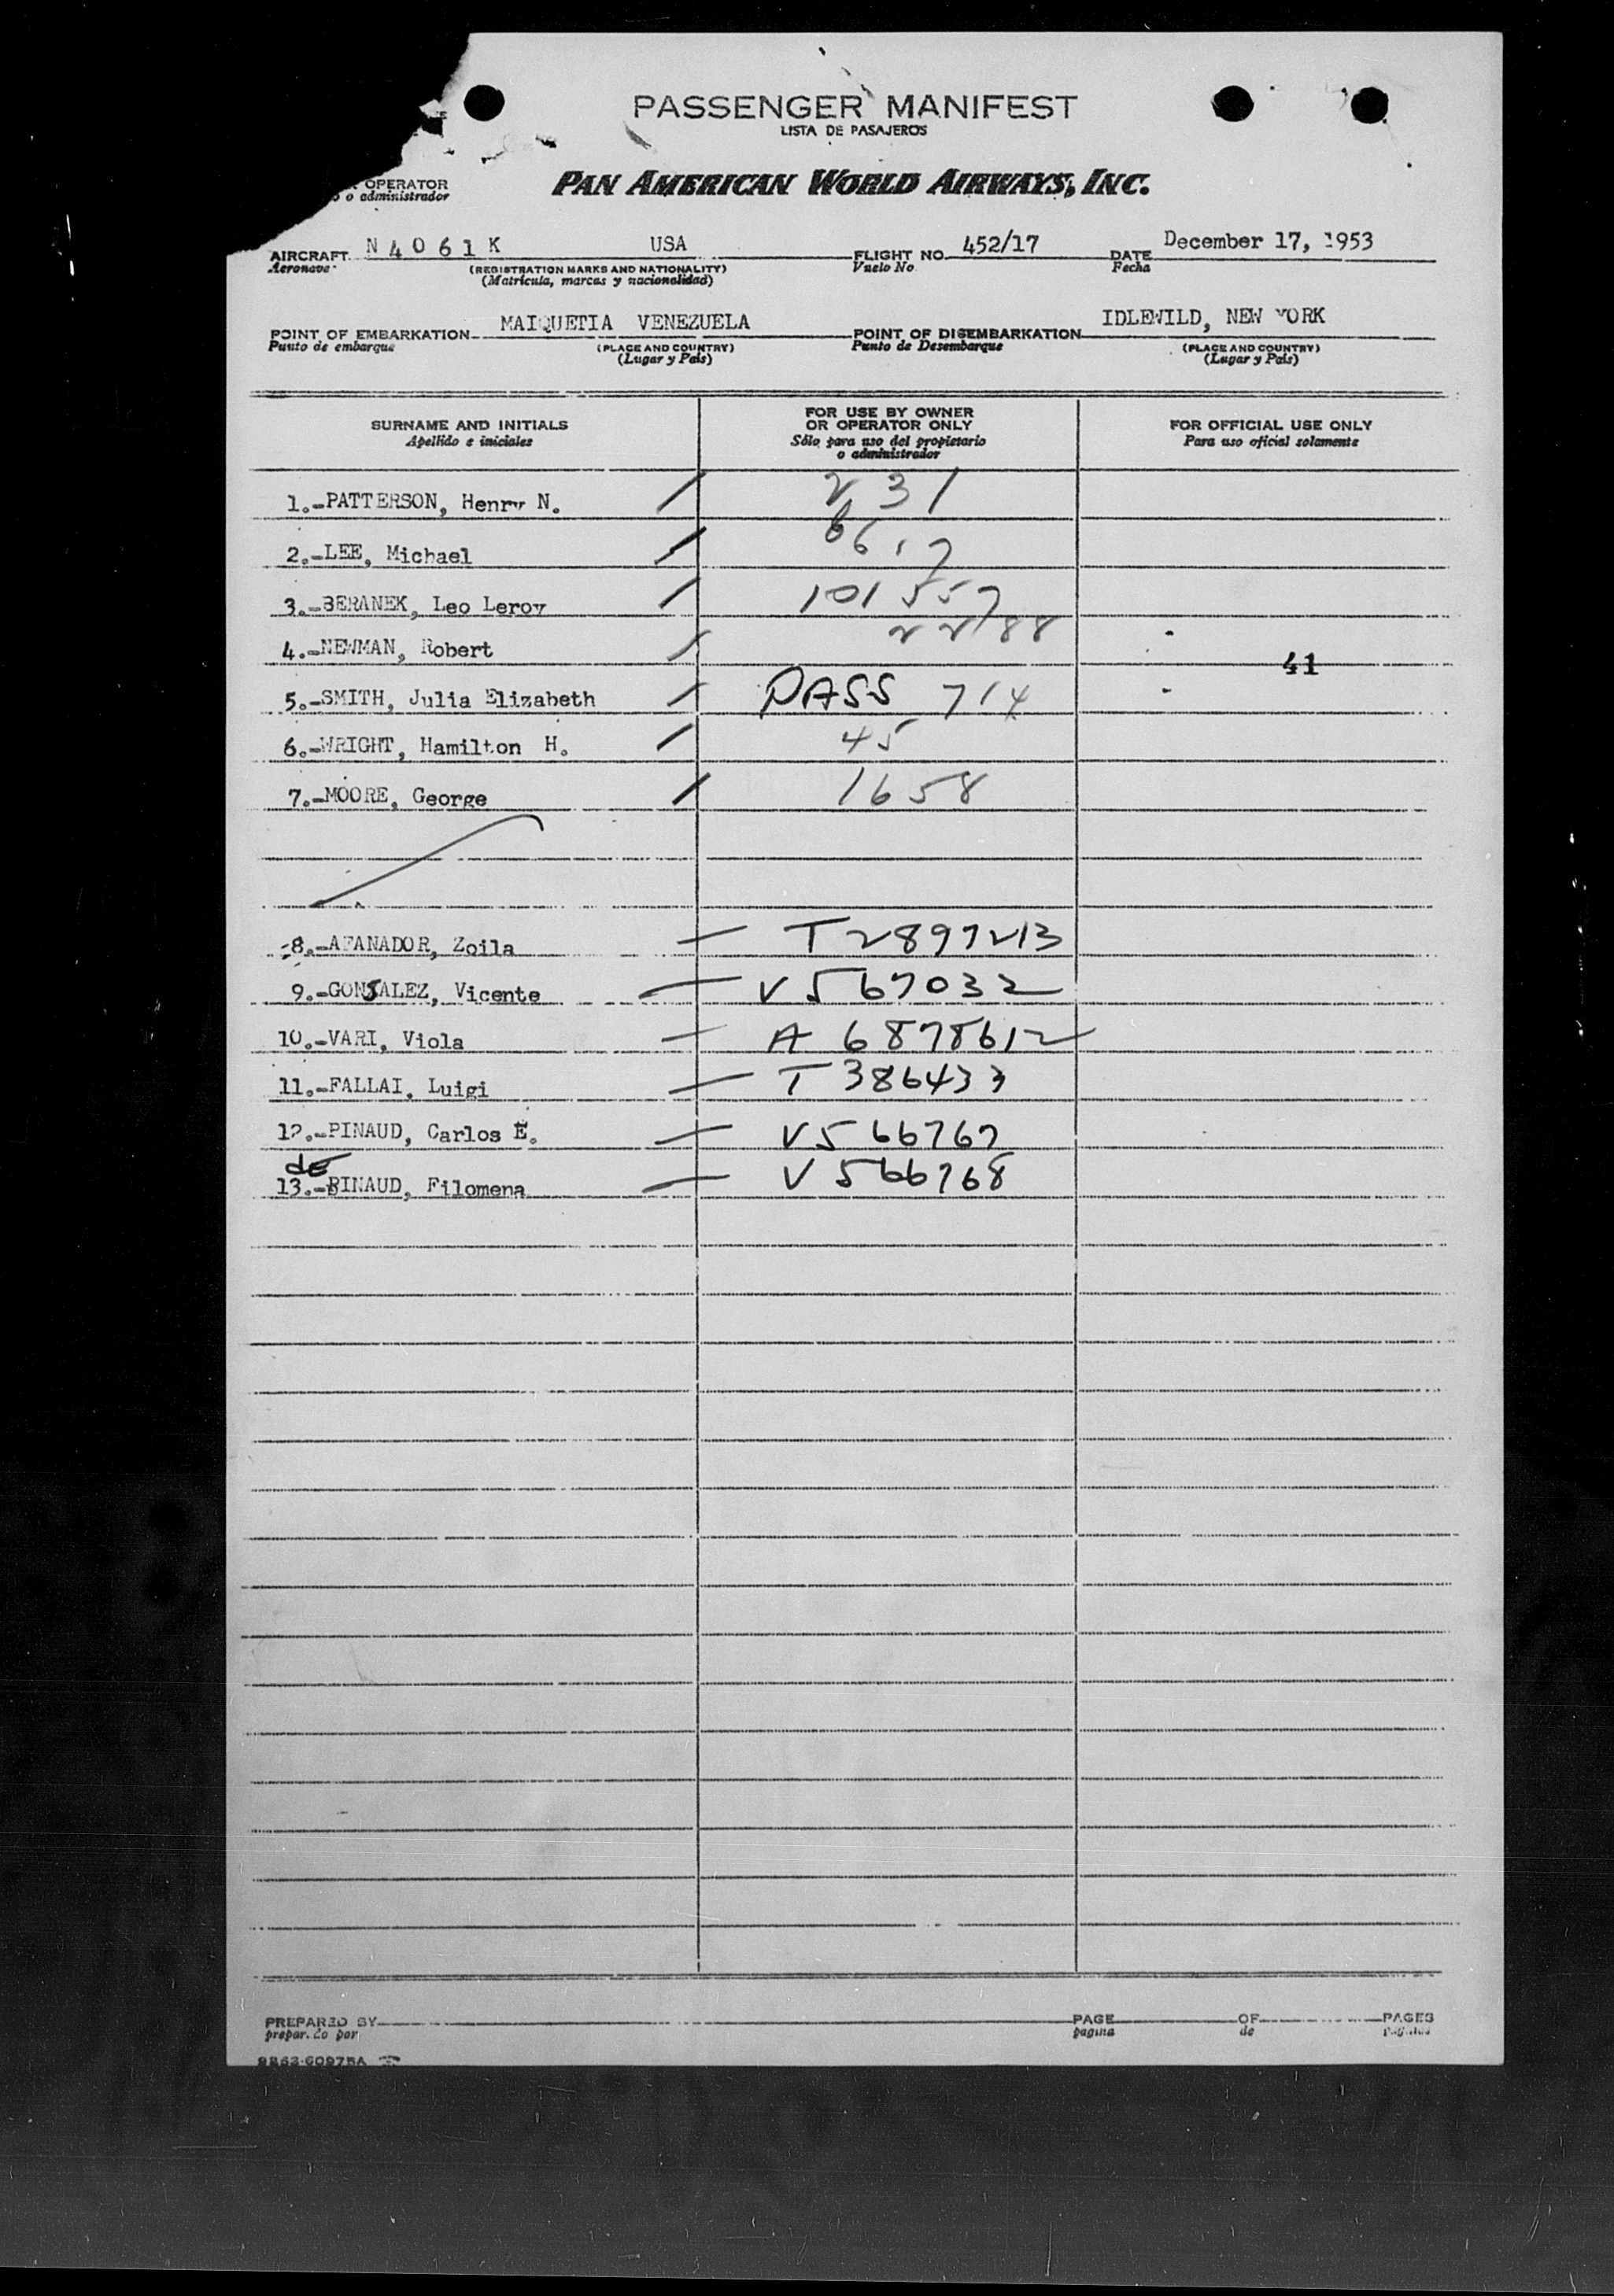 PASSENGER MANIFEST
LISTA DE PASAJEROS
OPERATOR
o administrador
PAN AMERICAN WORLD AIRWAYS, INC.
AIRCRAFT N4061K USA FLIGHT NO. 452/17 DATE December 17, 1953
Aeronave (REGISTRATION MARKS AND NATIONALITY) Vuelo No Fecha
(Matrícula, marcas y nacionalidad)
POINT OF EMBARKATION MAIQUETIA VENEZUELA POINT OF DISEMBARKATION IDLEWILD, NEW YORK
Punto de embarque (PLACE AND COUNTRY) Punto de Desembarque (PLACE AND COUNTRY)
(Lugar y País) (Lugar y País)
SURNAME AND INITIALS FOR USE BY OWNER OR OPERATOR ONLY FOR OFFICIAL USE ONLY
Apellido e iniciales Sólo para uso del propietario o administrador Para uso oficial solamente
1.-PATTERSON, Henry N. 231
2.-LEE, Michael
3.-BERANEK, Leo Leroy 101557
4.-NEWMAN, Robert 22188
41
5.-SMITH, Julia Elizabeth PASS 714
6.-WRIGHT, Hamilton H. 45
7.-MOORE, George 1658
8.-AFANADOR, Zoila T2897213
9.-GONSALEZ, Vicente V567032
10.-VARI, Viola A 6878612
11.-FALLAI, Luigi T 386433
12.-PINAUD, Carlos E. V566767
de
13.-PINAUD, Filomena V566768
PREPARED BY PAGE OF PAGES
preparado por pagina de paginas